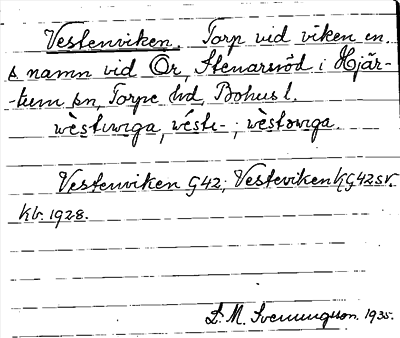 Vestenviken. Torp vid viken en
s namn vid Or, Stenarsröd i Hjär-
-tum sn, Torpe hd, Bohus l.
wèstɩwiga, wéstɩ- ; wèstəwiga.
Vestenviken G42; Vesteviken KG42 sv.
kb. 1928.
L. M. Svenungsson. 1935.